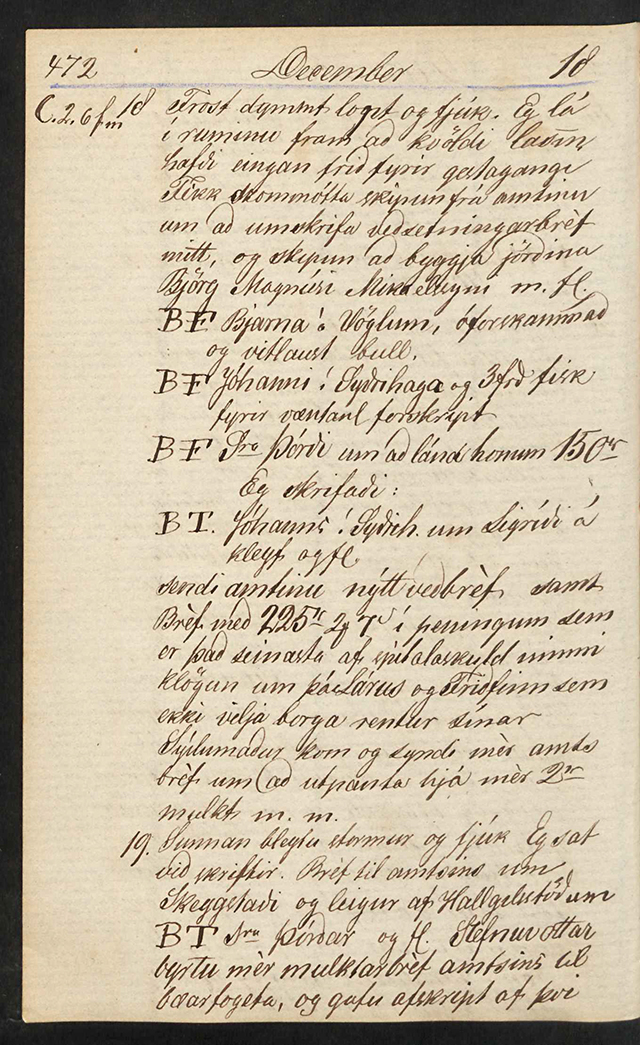 472 December 18
C. 2. 6 f.m 18 Frost dymmt logn og fjúk. Eg lá
í rúminu fram að kvöldi lasinn
hafði eingan frið fyrir gestagangi
Fékk skömmótta skipun frá amtinu
um að umskrifa veðsetningarbréf
mitt, og skipun að byggja jörðina
Björg Magnúsi Mikaelssyni m. fl.
BF Bjarna í Vöglum, óforskammað
og vitlaust bull.
BF Jóhanni í Syðrihaga og 3 frd fisk
fyrir væntanl forskript
BF Sra Þórði um að lána honum 150rd
Eg skrifaði:
BT. Jóhanni í Syðrih. um Sigríði á
kleyf og fl
sendi amtinu nýtt veðbréf samt
Bréf með 225rd 2 7s í peningum sem
er það seinasta af spítalaskuld minni
klögun um þá Lárus og Friðfinn sem
ekki vilja borga rentur sínar
Sýslumaður kom og syndi mér amts
bréf um að utpanta hjá mér 2rd
mulkt m. m.
19. Sunnan bleytu stormur og fjúk Eg sat
við skriftir. Bréf til amtsins um
Skeggstaði og leigur af Hallgilsstöðum
BT Sra Þórðar og fl. Stefnuvottar
byrtu mér mulktarbréf amtsins til
bæarfogeta, og gafu afskript af því